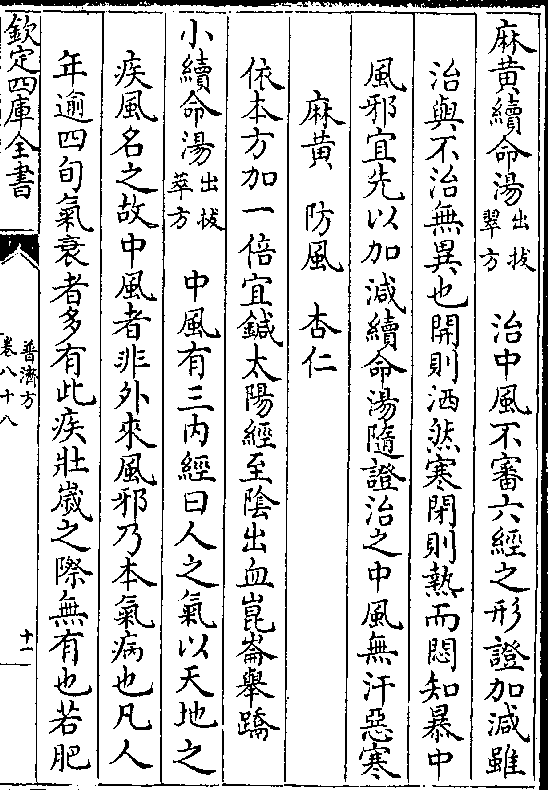 麻黄續命湯出拔翠方　治中風不審六經之形證加減雖
治與不治無異也開則洒然寒閉則熱而悶知暴中
風邪宜先以加減續命湯隨證治之中風無汗惡寒
麻黄　防風　杏仁
依本方加一倍宜鍼太陽經至陰出血崑崙舉蹻
小續命湯出拔萃方　中風有三内經曰人之氣以天地之
疾風名之故中風者非外來風邪乃本氣病也凡人
年逾四旬氣衰者多有此疾壯歳之際無有也若肥
欽定四庫全書
普濟方
卷八十八
十一